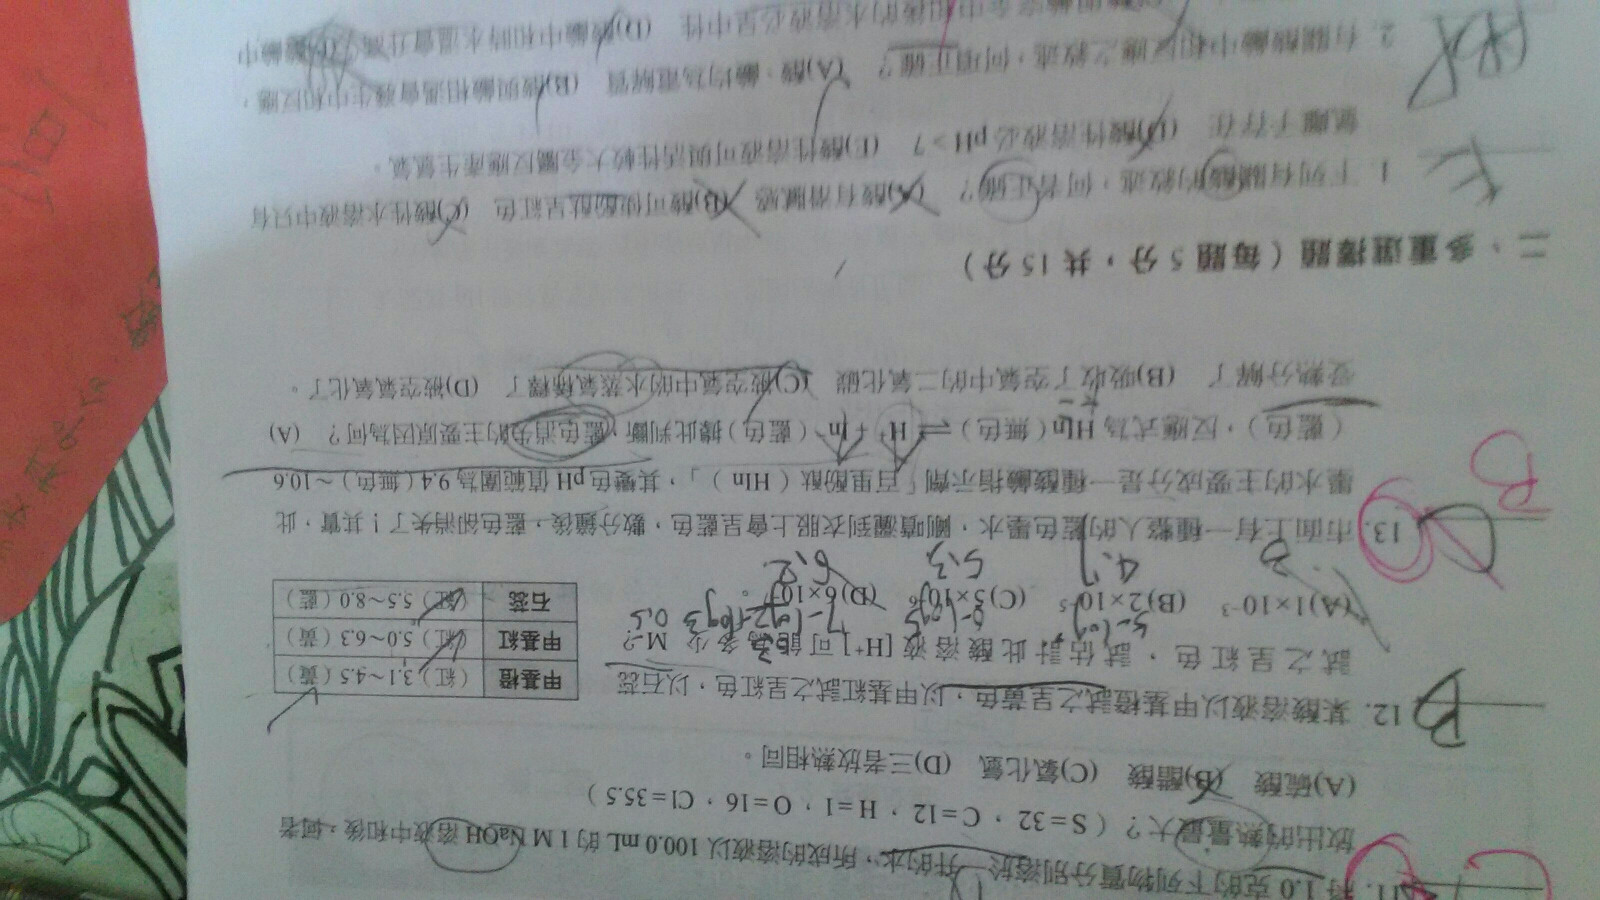 11. 將1.0克的下列物質分別溶於一升的水，所成的溶液以100.0 mL的1 M NaOH溶液中和後，何者
放出的熱量最大？（S=32，C=12，H=1，O=16，Cl=35.5）
(A)硫酸 (B)醋酸 (C)氯化氫 (D)三者放熱相同。
B
12. 某酸溶液以甲基橙試之呈黃色，以甲基紅試之呈紅色，以石蕊
試之呈紅色，試估計此酸溶液 [H⁺] 可能為多少 M？
(A)1×10⁻³ (B)2×10⁻⁵ (C)5×10⁻⁶ (D)6×10⁻⁷。
甲基橙 （紅）3.1~4.5（黃）
甲基紅 （紅）5.0~6.3（黃）
石蕊 （紅）5.5~8.0（藍）
4.7 5.3 6.2
B
13. 市面上有一種整人的藍色墨水，剛噴灑到衣服上會呈藍色，數分鐘後，藍色卻消失了！其實，此
墨水的主要成分是一種酸鹼指示劑「百里酚酞（HIn）」，其變色 pH 值範圍為 9.4（無色）~10.6
（藍色），反應式為 HIn（無色）⇌ H⁺ + In⁻（藍色）據此判斷，藍色消失的主要原因為何？ (A)
受熱分解了 (B)吸收了空氣中的二氧化碳 (C)被空氣中的水蒸氣稀釋了 (D)被空氣氧化了。
二、多重選擇題（每題 5 分，共 15 分）
1. 下列有關酸的敘述，何者正確？ (A)酸有滑膩感 (B)酸可使酚酞呈紅色 (C)酸性水溶液中只有
氫離子存在 (D)酸性溶液必 pH＞7 (E)酸性溶液可與活性較大金屬反應產生氫氣。
2. 有關酸鹼中和反應之敘述，何項正確？ (A)酸、鹼均為電解質 (B)酸與鹼相遇會發生中和反應，
(C)酸與鹼完全中和後的水溶液必呈中性 (D)酸鹼中和時水溫會升高 (E)酸鹼中